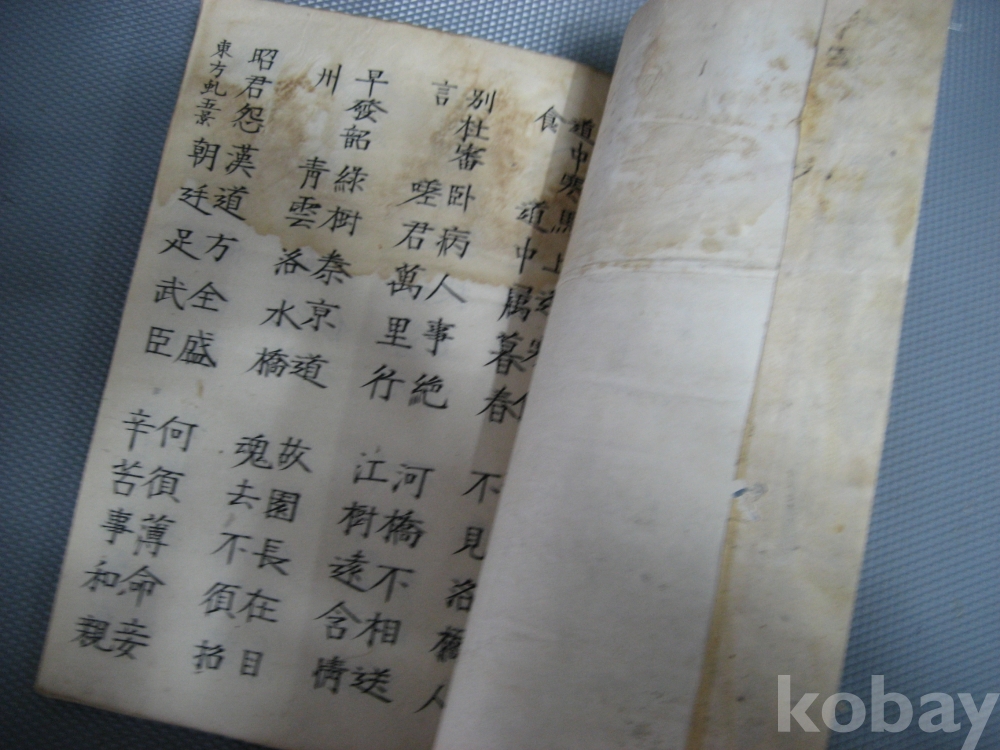 道中寒 馬上逢
食 道中属暮春 不見洛橋人
別杜審 卧病人事絶 河橋不相送
言 嗟君萬里行 江樹遠含情
早發韶 綠樹秦京道 故園長在目
州 靑雲洛水橋 魂去不須招
昭君怨 漢道方全盛 何須薄命妾
東方虬 朝廷足武臣 辛苦事和親
kobay